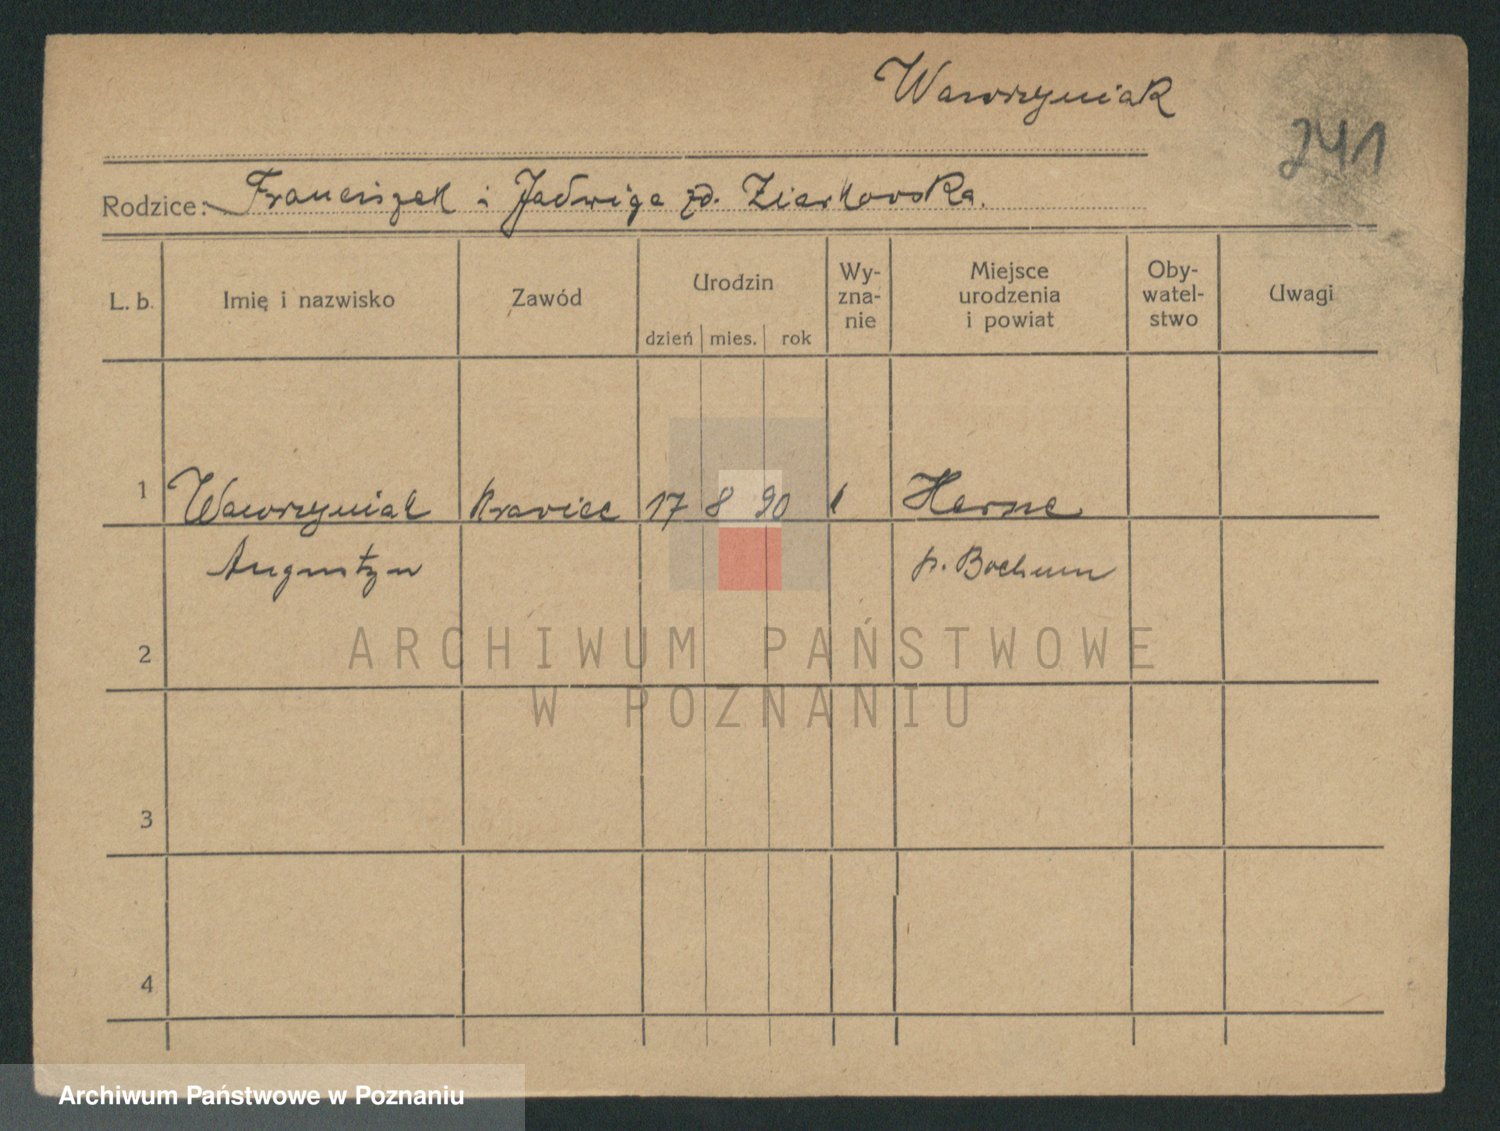 Wawrzyniak
241
Rodzice: Franciszek i Jadwiga zd. Zierkowska.
L. b. Imię i nazwisko Zawód Urodzin Wy-zna-nie Miejsce urodzenia i powiat Oby-watel-stwo Uwagi
dzień mies. rok
1 Wawrzyniak krawiec 17 8 90 Herne
Augustyn p. Bochum
2
ARCHIWUM PAŃSTWOWE
W POZNANIU
3
4
Archiwum Państwowe w Poznaniu